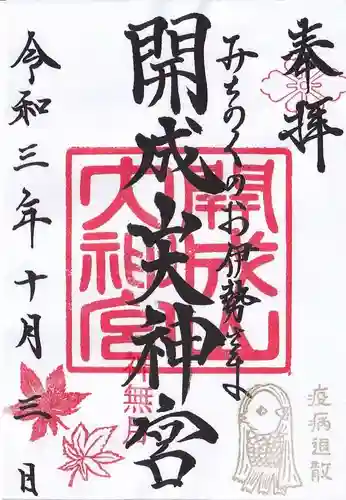 奉拝
みちのくのお伊勢さま
開成山大神宮
令和三年十月三日
開成山
大神宮
神無月
疫病退散